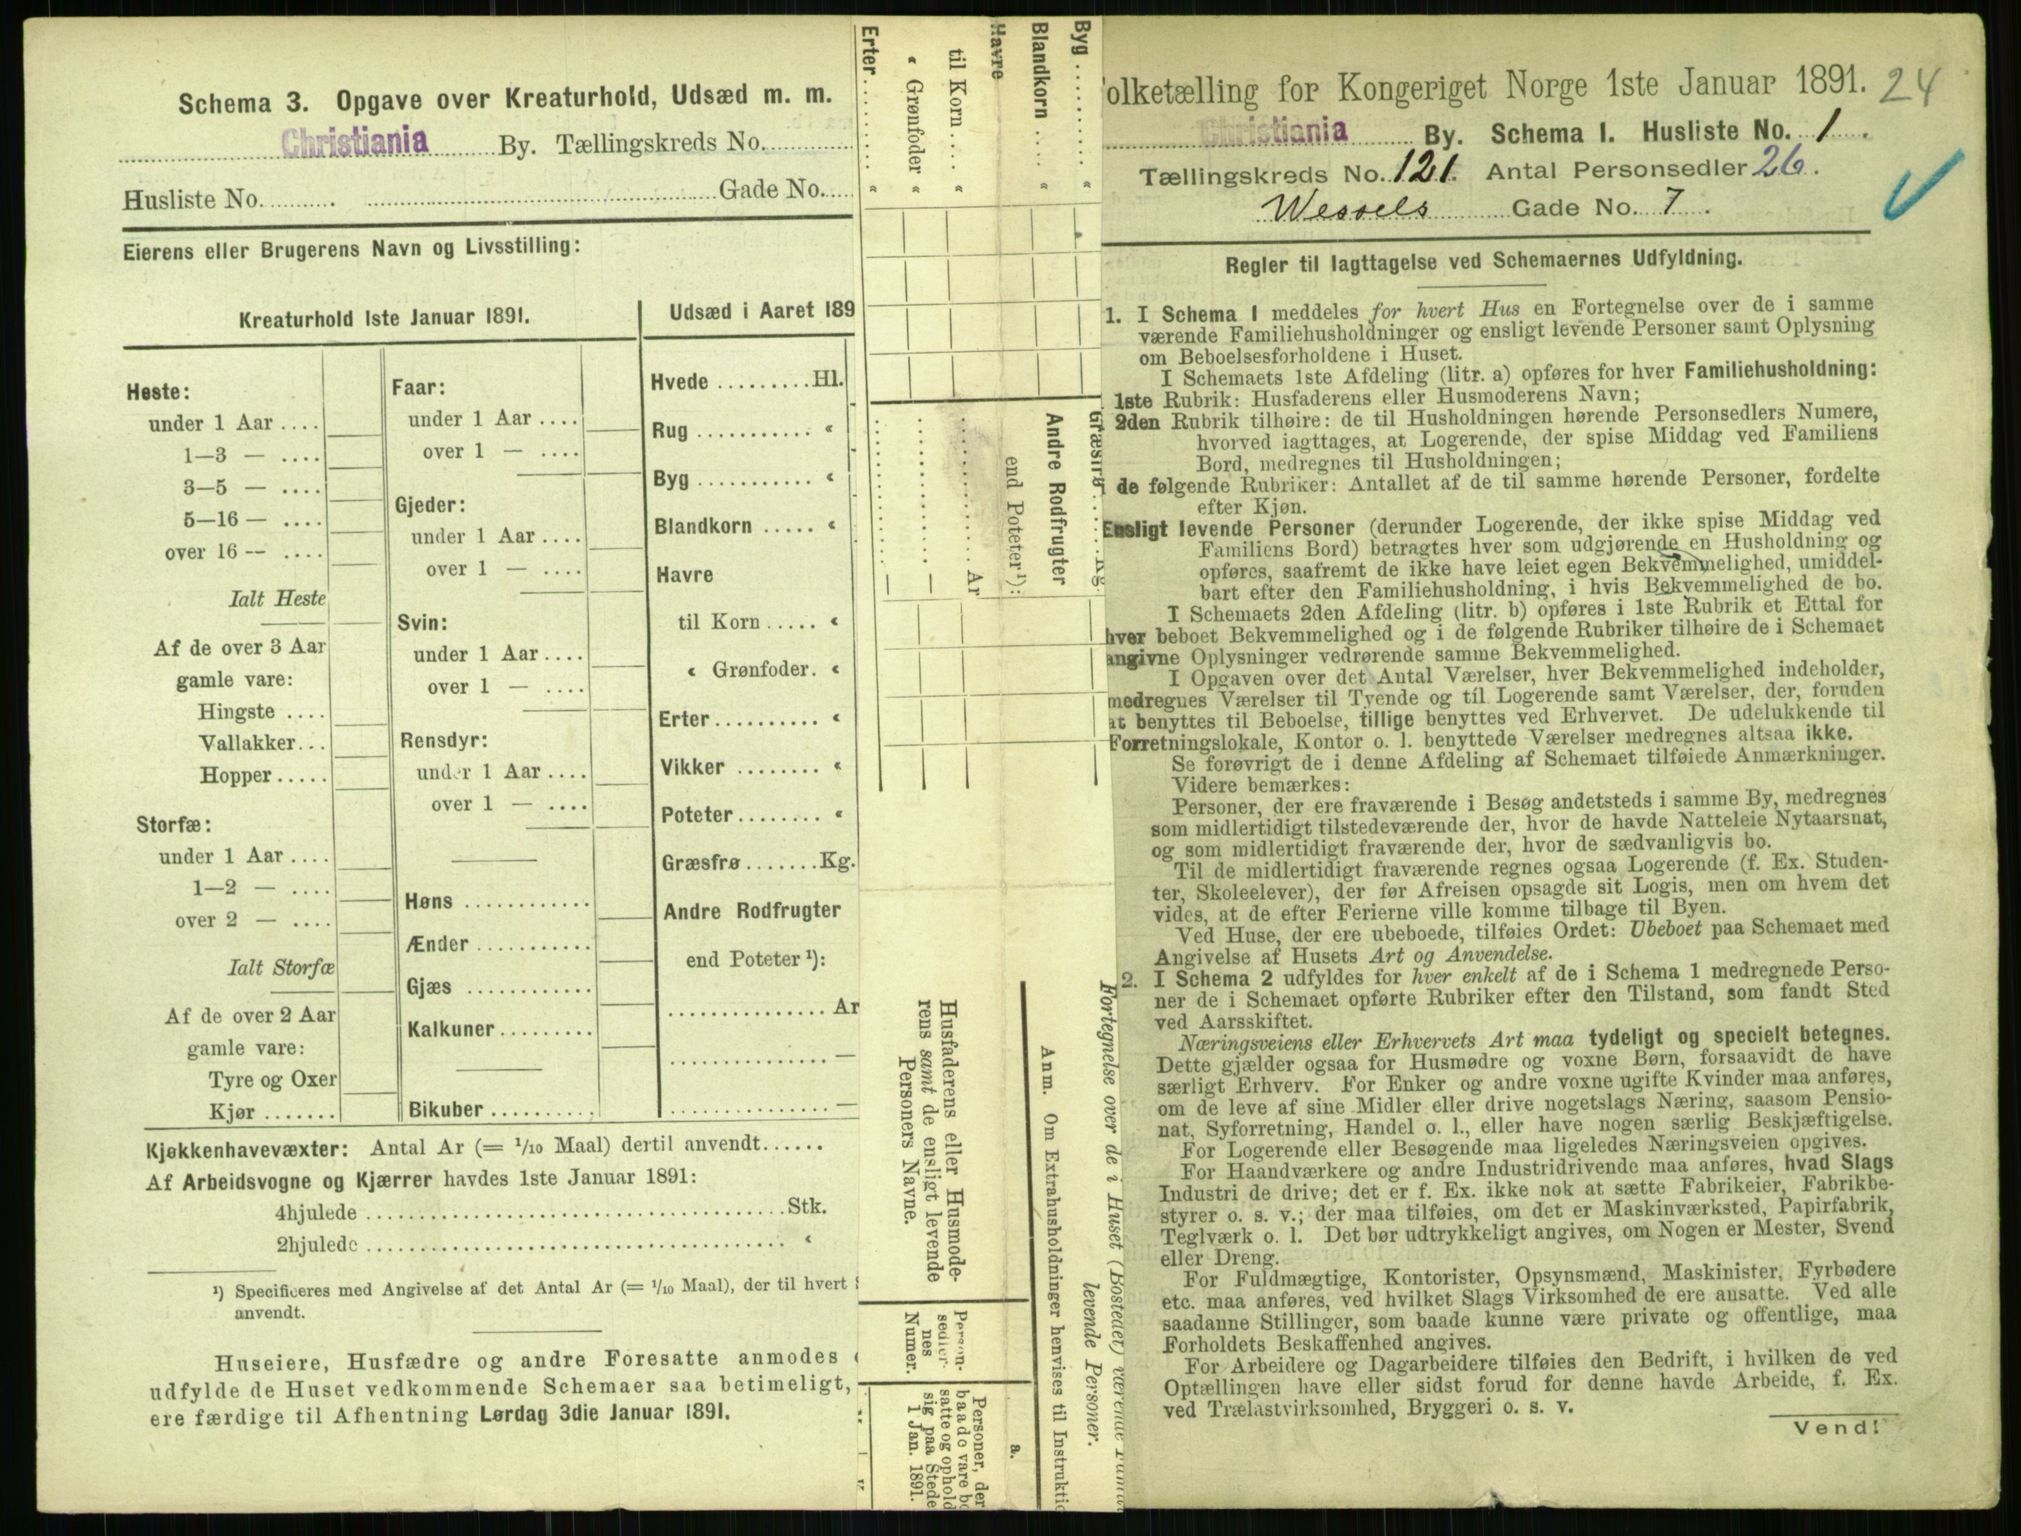 Schema 3. Opgave over Kreaturhold, Udsæd m. m.
Christiania By. Tællingskreds No.
Husliste No. Gade No.
Eierens eller Brugerens Navn og Livsstilling:
Kreaturhold 1ste Januar 1891.
Heste:
under 1 Aar ....
1—3 — ....
3—5 — ....
5—16 — ....
over 16 — ....
Ialt Heste
Af de over 3 Aar
gamle vare:
Hingste ....
Vallakker...
Hopper .....
Storfæ:
under 1 Aar ....
1—2 — ....
over 2 — ....
Ialt Storfæ
Af de over 2 Aar
gamle vare:
Tyre og Oxer
Kjør .......
Faar:
under 1 Aar ....
over 1 — ....
Gjeder:
under 1 Aar ....
over 1 — ....
Svin:
under 1 Aar ....
over 1 — ....
Rensdyr:
under 1 Aar ....
over 1 — ....
Høns ............
Ænder ...........
Gjæs ............
Kalkuner .........
Bikuber ..........
Udsæd i Aaret 189
Hvede .........Hl.
Rug ........... «
Byg ........... «
Blandkorn ..... «
Havre
til Korn ..... «
« Grønfoder. «
Erter ......... «
Vikker ........ «
Poteter ........ «
Græsfrø .......Kg.
Andre Rodfrugter
end Poteter ¹):
............... Ar
............... —
............... —
Kjøkkenhavevæxter: Antal Ar (= 1/10 Maal) dertil anvendt......
Af Arbeidsvogne og Kjærrer havdes 1ste Januar 1891:
4hjulede ........ Stk.
2hjulede ........ «
¹) Specificeres med Angivelse af det Antal Ar (= 1/10 Maal), der til hvert
anvendt.
Huseiere, Husfædre og andre Foresatte anmodes
udfylde de Huset vedkommende Schemaer saa betimeligt,
ere færdige til Afhentning Lørdag 3die Januar 1891.
Byg ........ «
Blandkorn .... «
Havre
til Korn .... «
« Grønfoder «
Erter ........ «
Græsfrø ..... Kg.
Andre Rodfrugter
end Poteter ¹):
............ Ar
............ —
............ —
Fortegnelse over de i Huset (Bostedet) værende
levende Personer.
Anm. Om Extrahusholdninger henvises til
Husfaderens eller Husmode-
rens samt de ensligt levende
Personers Navne.
Person-
sedler-
nes
Numer.
a.
Personer, der
baade vare bo
satte og ophold
sig paa Stede
1 Jan. 1891.
olketælling for Kongeriget Norge 1ste Januar 1891. 24
Christiania By. Schema 1. Husliste No. 1.
Tællingskreds No. 121. Antal Personsedler 26.
Wessels Gade No. 7.
Regler til Iagttagelse ved Schemaernes Udfyldning.
1. I Schema 1 meddeles for hvert Hus en Fortegnelse over de i samme
værende Familiehusholdninger og ensligt levende Personer samt Oplysning
om Beboelsesforholdene i Huset.
I Schemaets 1ste Afdeling (litr. a) opføres for hver Familiehusholdning:
1ste Rubrik: Husfaderens eller Husmoderens Navn;
2den Rubrik tilhøire: de til Husholdningen hørende Personsedlers Numere,
hvorved iagttages, at Logerende, der spise Middag ved Familiens
Bord, medregnes til Husholdningen;
de følgende Rubriker: Antallet af de til samme hørende Personer, fordelte
efter Kjøn.
Ensligt levende Personer (derunder Logerende, der ikke spise Middag ved
Familiens Bord) betragtes hver som udgjørende en Husholdning og
opføres, saafremt de ikke have leiet egen Bekvemmelighed, umiddel-
bart efter den Familiehusholdning, i hvis Bekvemmelighed de bo.
I Schemaets 2den Afdeling (litr. b) opføres i 1ste Rubrik et Ettal for
hver beboet Bekvemmelighed og i de følgende Rubriker tilhøire de i Schemaet
angivne Oplysninger vedrørende samme Bekvemmelighed.
I Opgaven over det Antal Værelser, hver Bekvemmelighed indeholder,
medregnes Værelser til Tyende og til Logerende samt Værelser, der, foruden
at benyttes til Beboelse, tillige benyttes ved Erhvervet. De udelukkende til
Forretningslokale, Kontor o. l. benyttede Værelser medregnes altsaa ikke.
Se forøvrigt de i denne Afdeling af Schemaet tilføiede Anmærkninger.
Videre bemærkes:
Personer, der ere fraværende i Besøg andetsteds i samme By, medregnes
som midlertidigt tilstedeværende der, hvor de havde Natteleie Nytaarsnat,
og som midlertidigt fraværende der, hvor de sædvanligvis bo.
Til de midlertidigt fraværende regnes ogsaa Logerende (f. Ex. Studen-
ter, Skoleelever), der før Afreisen opsagde sit Logis, men om hvem det
vides, at de efter Ferierne ville komme tilbage til Byen.
Ved Huse, der ere ubeboede, tilføies Ordet: Ubeboet paa Schemaet med
Angivelse af Husets Art og Anvendelse.
2. I Schema 2 udfyldes for hver enkelt af de i Schema 1 medregnede Perso-
ner de i Schemaet opførte Rubriker efter den Tilstand, som fandt Sted
ved Aarsskiftet.
Næringsveiens eller Erhvervets Art maa tydeligt og specielt betegnes.
Dette gjælder ogsaa for Husmødre og voxne Børn, forsaavidt de have
særligt Erhverv. For Enker og andre voxne ugifte Kvinder maa anføres,
om de leve af sine Midler eller drive nogetslags Næring, saasom Pensio-
nat, Syforretning, Handel o. l., eller have nogen særlig Beskjæftigelse.
For Logerende eller Besøgende maa ligeledes Næringsveien opgives.
For Haandværkere og andre Industridrivende maa anføres, hvad Slags
Industri de drive; det er f. Ex. ikke nok at sætte Fabrikeier, Fabrikbe-
styrer o. s. v.; der maa tilføies, om det er Maskinværksted, Papirfabrik,
Teglværk o. l. Det bør udtrykkeligt angives, om Nogen er Mester, Svend
eller Dreng.
For Fuldmægtige, Kontorister, Opsynsmænd, Maskinister, Fyrbødere
etc. maa anføres, ved hvilket Slags Virksomhed de ere ansatte. Ved alle
saadanne Stillinger, som baade kunne være private og offentlige, maa
Forholdets Beskaffenhed angives.
For Arbeidere og Dagarbeidere tilføies den Bedrift, i hvilken de ved
Optællingen have eller sidst forud for denne havde Arbeide, f. Ex.
ved Trælastvirksomhed, Bryggeri o. s. v.
Vend!